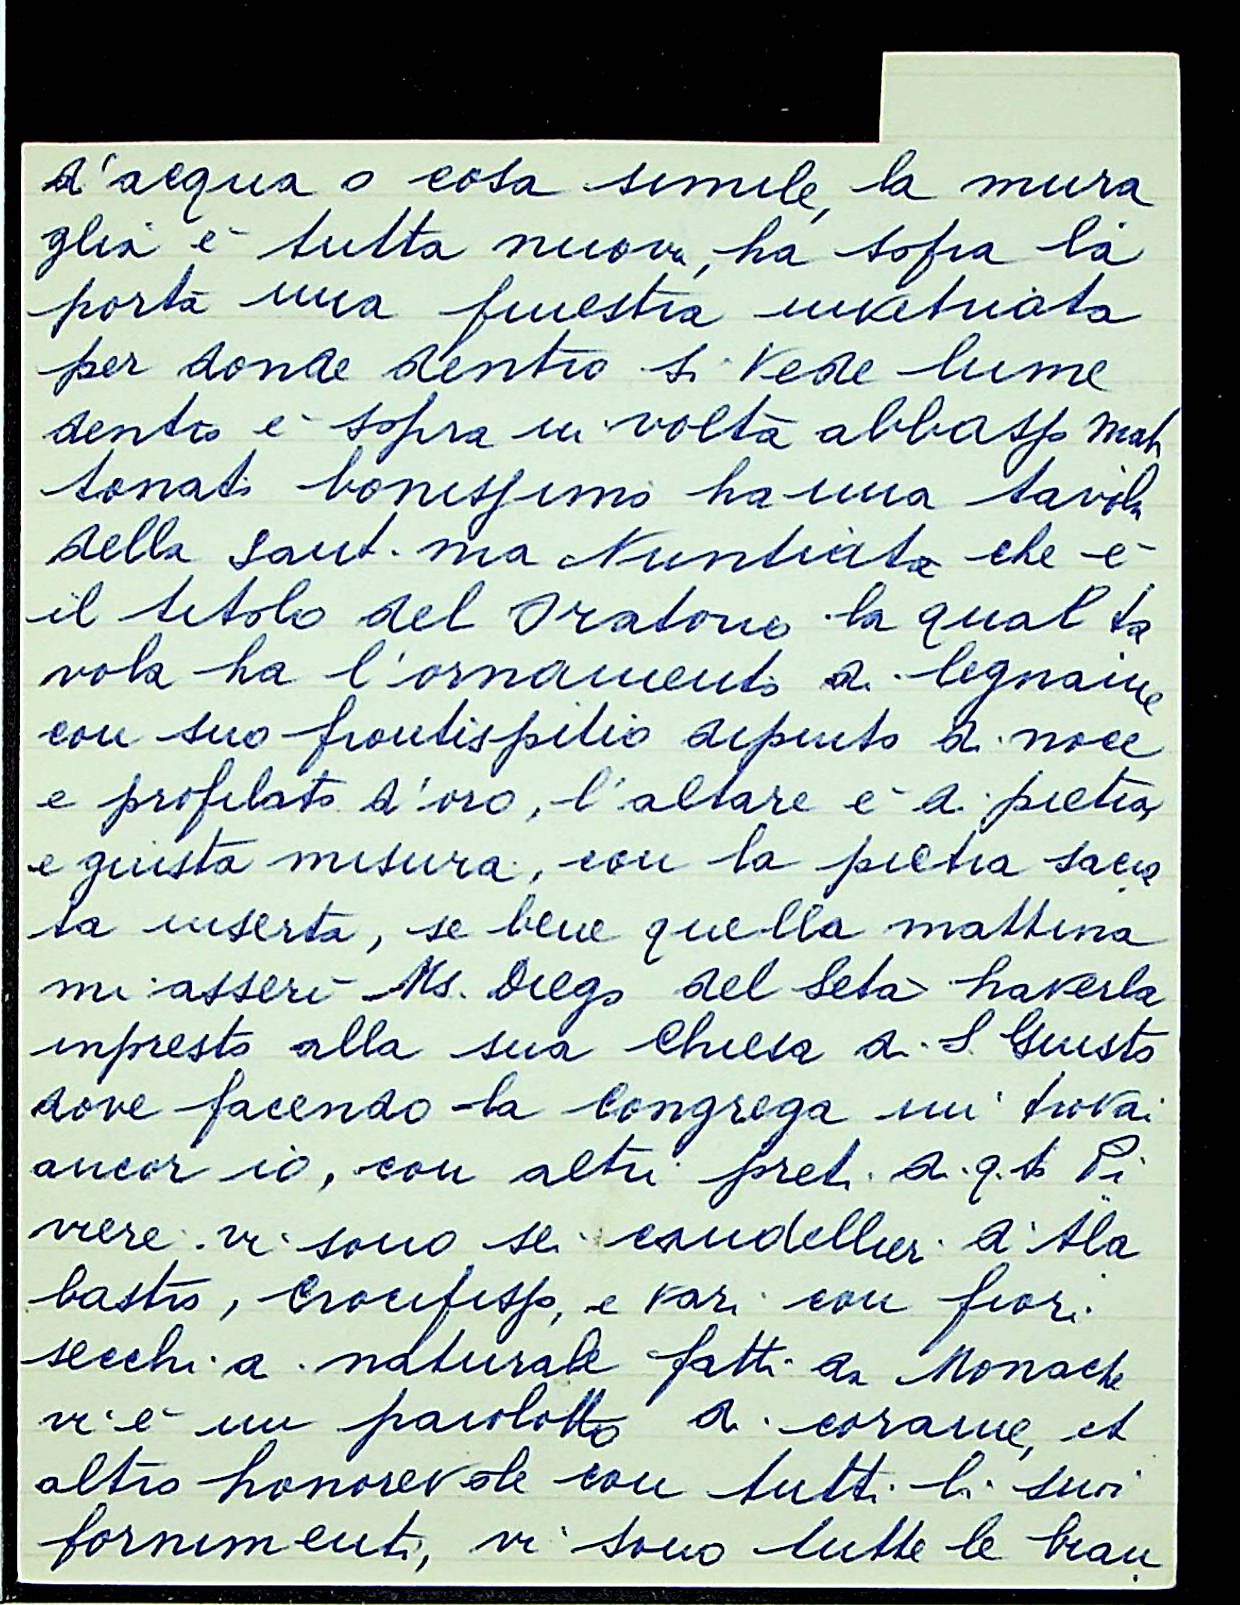 d'acqua o cosa simile, la mura
glia è tutta nuova, ha sopra la
porta una finestra invetriata
per donde dentro si vede lume
dentro e sopra in volta abbasso mat
tonato bonissimo ha una tavola
della Sant.ma Nuntiata che è
il titolo del Oratorio la qual ta
vola ha l'ornamento di legname
con suo frontispitio dipinto di noce
e profilato d'oro, l'altare è di pietra
e giusta misura, con la pietra sacra
ta inserta, se bene quella mattina
mi asserì Ms. Diego del Seta haverla
inpresto alla sua Chiesa di S. Giusto
dove facendo la Congrega mi trovai
ancor io, con altri preti di q.to Pi
viere. vi sono sei candellieri d'Ala
bastro, Crocifisso, e vasi con fiori
secchi a naturale fatti da Monache
vi è un pariolotto di corame, et
altro honorevole con tutti li suoi
fornimenti, vi sono tutte le bian